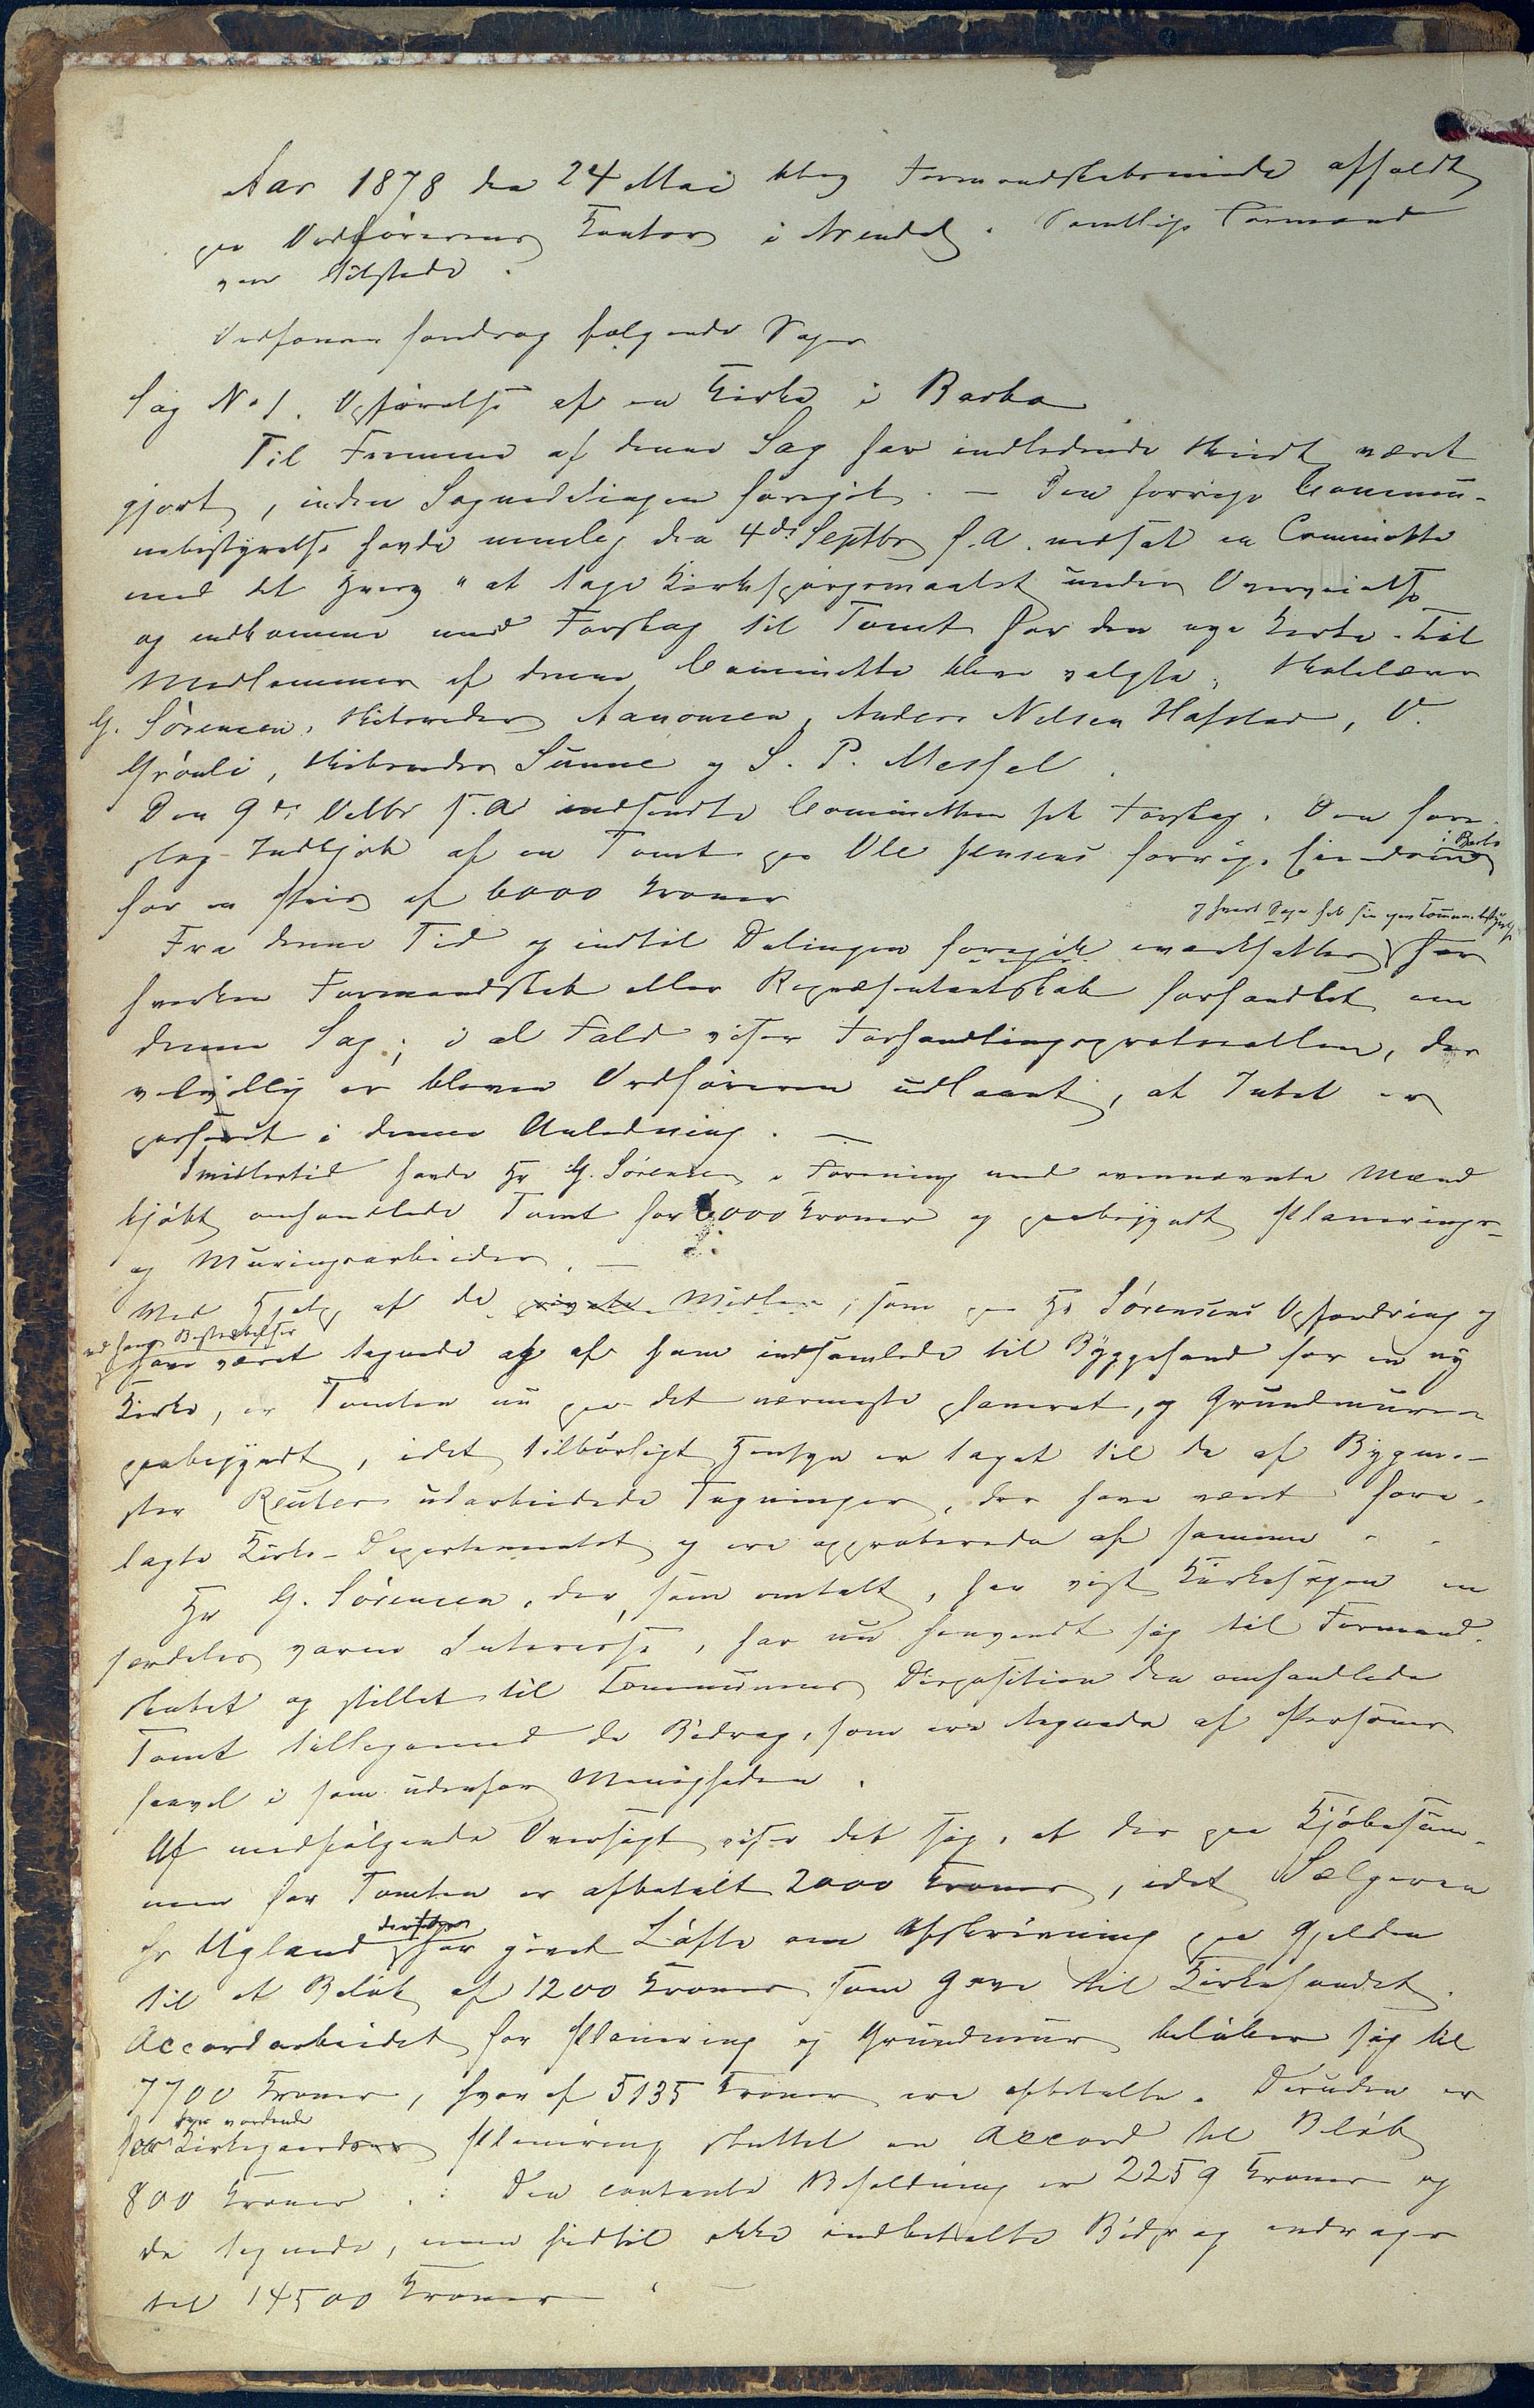 Aar 1878 den 24 Mai blev Formandskabsmøde afholdt
paa Ordførerens Kontor i Arendal. Samtlige Formænd
var tilstede.
Ordføreren foredrog følgende Sager
Sag No 1. Opførelse af en Kirke i Barbo
Til Fremme af denne Sag har indledende Skridt været
gjort, inden Sognedelingen foregik. — Den forrige Commu-
nebestyrelse havde nemlig den 4de Septbr f.A. nedsat en Committe
med det Hverv "at tage Kirkespørgsmaalet under Overveielse
og indkomme med Forslag til Tomt for den nye Kirke. Til
Medlemmer af denne Committe blev valgte: Skolelærer
G. Sørensen, Skibsreder Aanonsen, Anders Nilsen Hafstad, O.
Grönli, Skibsreder Sunne og S. P. Messel.
Den 9de Octbr f.A indsendte Committeen sit Forslag. Den fore-
slog Indkjøb af en Tomt paa Ole Jensens forrige Eiendom i Barbo
for en Priis af 6000 Kroner
Fra denne Tid og indtil Delingen foregik iværksattes og hvert Sogn fik sin egen Communebestyrelse har
hverken Formandskab eller Repræsentantskab forhandlet om
denne Sag; i al Fald viser Forhandlingsprotocollen, der
velvillig er bleven Ordføreren udlaant, at Intet er
passeret i denne Anledning. —
Imidlertid havde Hr G. Sørensen i Forening med ovennævnte Mænd
kjøbt omhandlede Tomt for 6000 Kroner og paabegyndt Planerings-
og Muringsarbeider. —
Med Hjælp af de private Midler, som paa Hr Sørensens Opfordring og
ved hans Bestræbelser have været tegnede og af ham indsamlede til Byggefond for en ny
Kirke, er Tomten nu paa det nærmeste planeret, og Grundmuren
paabegyndt, idet tilbørligt Hensyn er taget til de af Bygme-
ster Reuter udarbeidede Tegninger, der have været fore-
lagte Kirke-Departementet og ere approberede af samme. -
Hr G. Sørensen, der, som omtalt, har vist Kirkesagen en
særdeles varm Interesse, har nu henvendt sig til Formand-
skabet og stillet til Kommunens Disposition den omhandlede
Tomt tilligemed de Bidrag, som ere tegnede af Personer
saavel i som udenfor Menigheden.
Af medfølgende Oversigt viser det sig, at der paa Kjøbesum-
men for Tomten er afbetalt 2000 Kroner, idet Sælgeren
Hr Ugland derhos har givet Løfte om Afskrivning paa Gjelden
til et Beløb af 1200 Kroner som Gave til Kirkefondet.
Accordarbeidet for Planering og Grundmur beløber sig til
7700 Kroner, hvoraf 5135 Kroner ere afbetalte. Desuden er
Kirkegaardens Planering sluttet en Accord til Beløb
800 Kroner. Den contante Beholdning er 2259 Kroner og
de tegnede, men hidtil ikke indbetalte Bidrag andrager
til 14500 Kroner. —